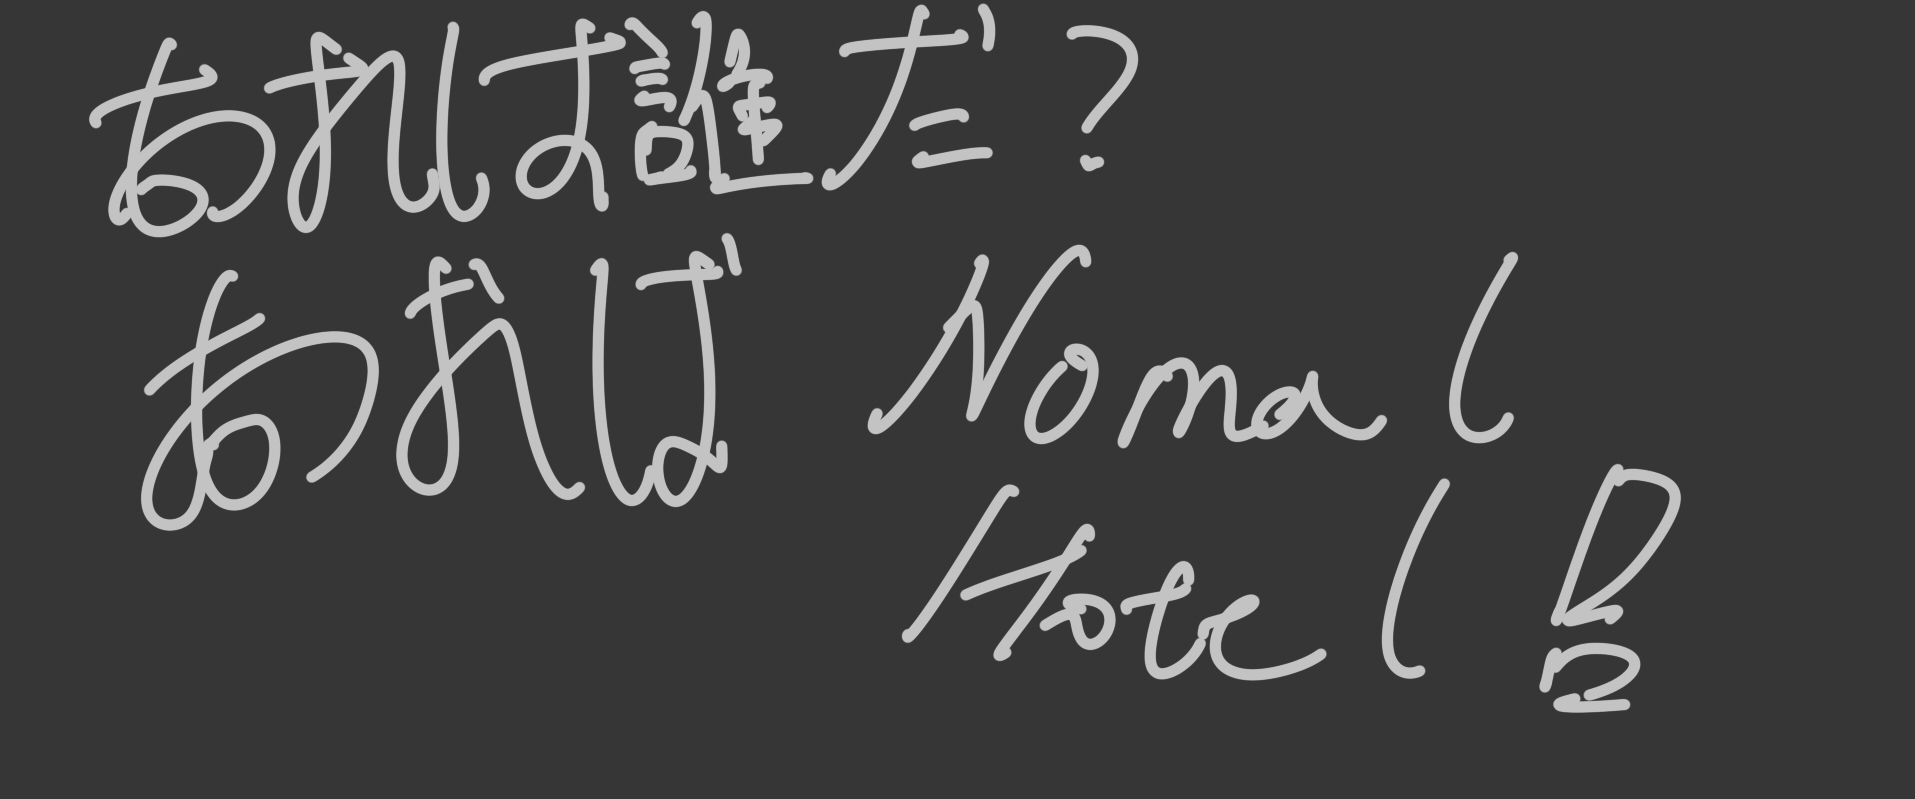 あれは誰だ?
あれば Nomal
Hotel!